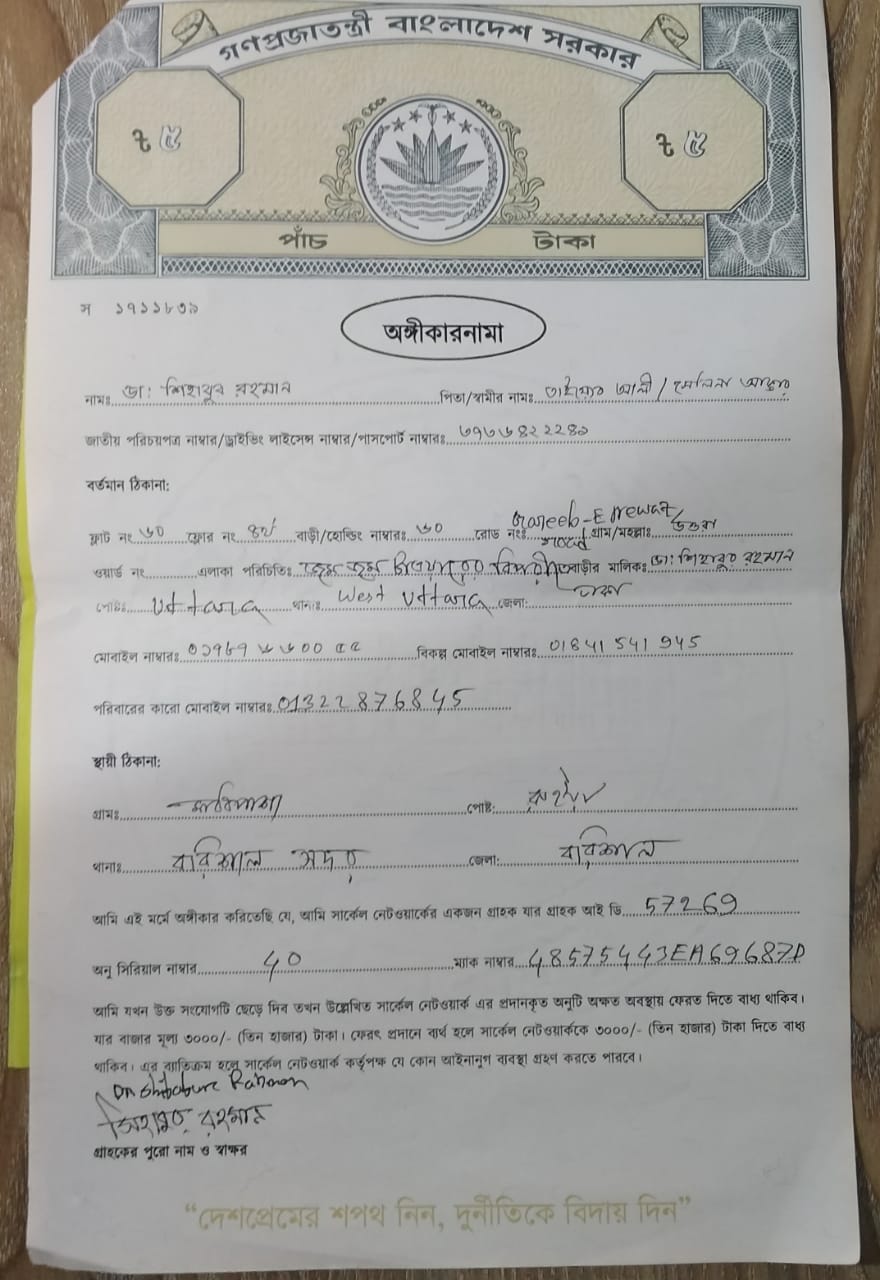 গণপ্রজাতন্ত্রী বাংলাদেশ সরকার
৳ ৫ ৳ ৫
পাঁচ টাকা
স ১৭১১৮৩৯
অঙ্গীকারনামা
নামঃ ডা: শিহাবুর রহমান পিতা/স্বামীর নামঃ আলী /
জাতীয় পরিচয়পত্র নাম্বার/ড্রাইভিং লাইসেন্স নাম্বার/পাসপোর্ট নাম্বারঃ
বর্তমান ঠিকানা:
ফ্লাট নং ফ্লোর নং বাড়ী/হোল্ডিং নাম্বারঃ রোড নংঃ Gareeb-E Newaz গ্রাম/মহল্লাঃ উত্তরা
ওয়ার্ড নং এলাকা পরিচিতিঃ বিপরীতে বাড়ীর মালিকঃ ডা: শিহাবুর রহমান
পোষ্টঃ Uttara থানাঃ West Uttara জেলা: ঢাকা
মোবাইল নাম্বারঃ বিকল্প মোবাইল নাম্বারঃ 01841 541 945
পরিবারের কারো মোবাইল নাম্বারঃ 01322876845
স্থায়ী ঠিকানা:
গ্রামঃ পোষ্ট:
থানাঃ বরিশাল সদর জেলা: বরিশাল
আমি এই মর্মে অঙ্গীকার করিতেছি যে, আমি সার্কেল নেটওয়ার্কের একজন গ্রাহক যার গ্রাহক আই ডি 57269
অনু সিরিয়াল নাম্বার 40 ম্যাক নাম্বার 48575443EA69687D
আমি যখন উক্ত সংযোগটি ছেড়ে দিব তখন উল্লেখিত সার্কেল নেটওয়ার্ক এর প্রদানকৃত অনুটি অক্ষত অবস্থায় ফেরত দিতে বাধ্য থাকিব।
যার বাজার মূল্য ৩০০০/- (তিন হাজার) টাকা। ফেরৎ প্রদানে ব্যর্থ হলে সার্কেল নেটওয়ার্ককে ৩০০০/- (তিন হাজার) টাকা দিতে বাধ্য
থাকিব। এর ব্যাতিক্রম হলে সার্কেল নেটওয়ার্ক কর্তৃপক্ষ যে কোন আইনানুগ ব্যবস্থা গ্রহণ করতে পারবে।
Dr Shihabur Rahman
শিহাবুর রহমান
গ্রাহকের পুরো নাম ও স্বাক্ষর
“দেশপ্রেমের শপথ নিন, দুর্নীতিকে বিদায় দিন”